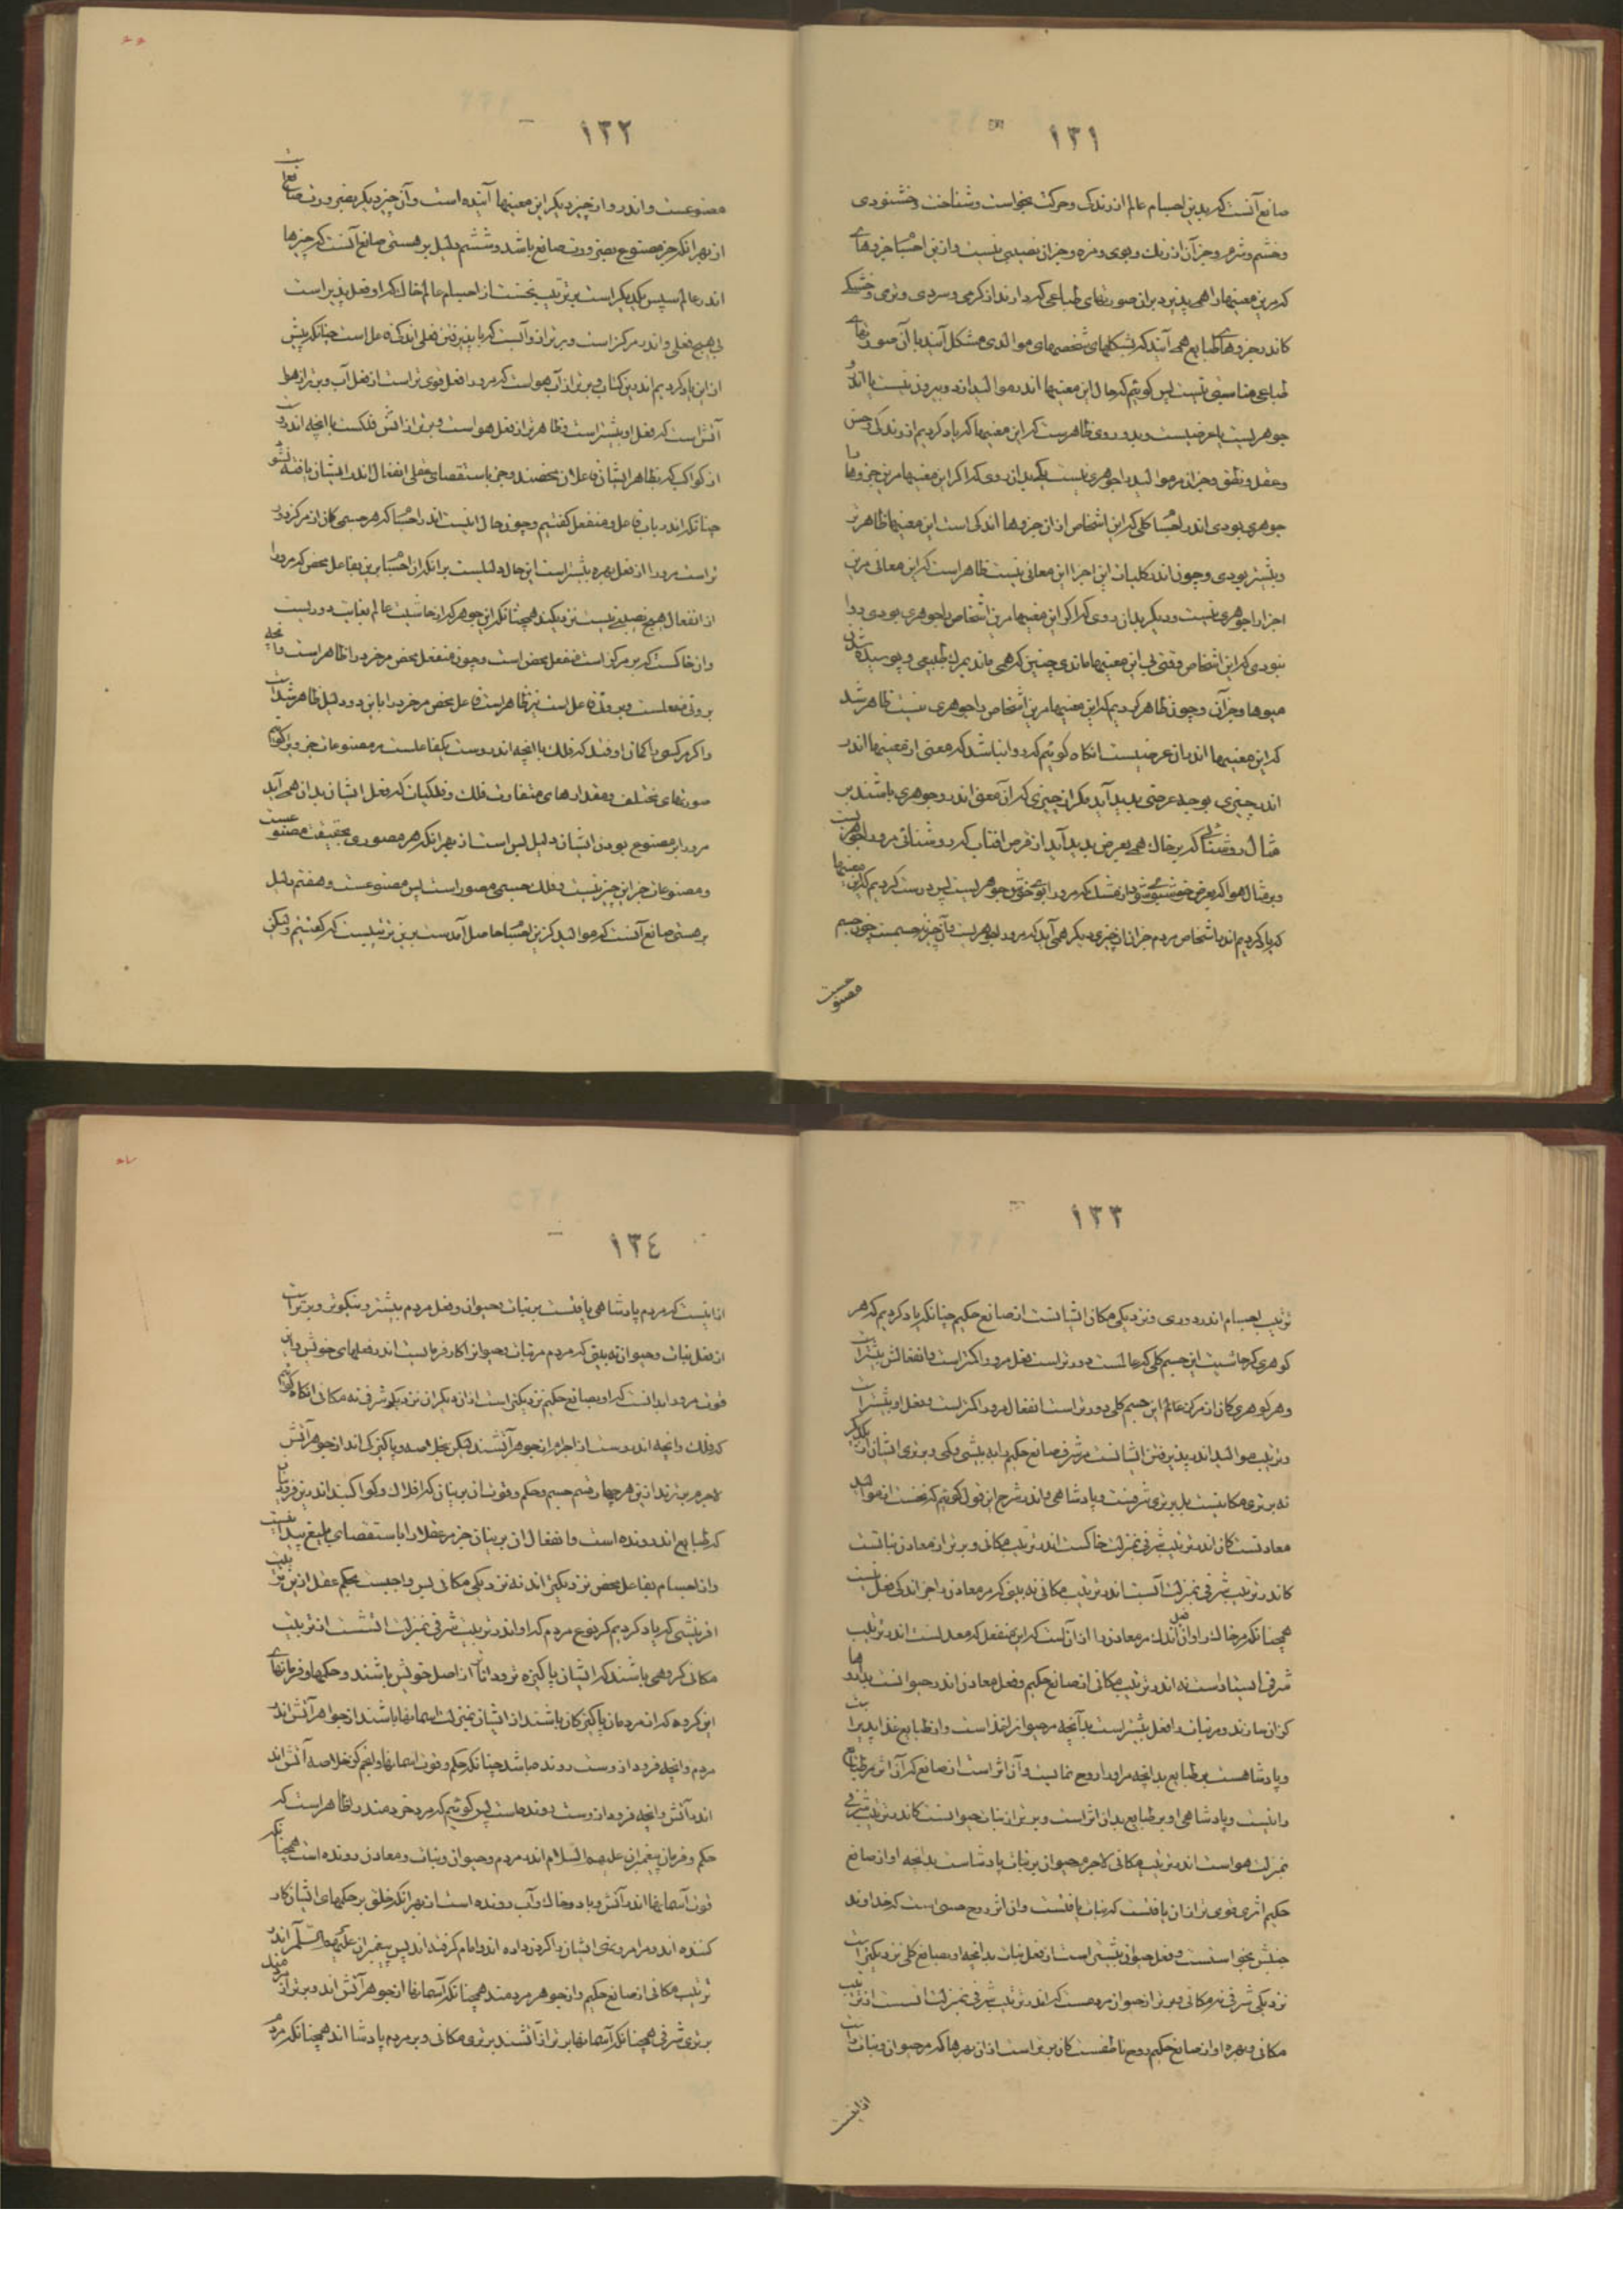 ١٣١
صانع آنست که بدین اجسام عالم از زندگی و حرکت بخواست و شناخت و خشنودی
و خشم و شرم و جز آن از رنگ و بوی و مزه و جز آن نصیبی نیست و ازین اجسام جزوهای
که مرین معنیها را همی پذیرد بران صورتهای طباعی که دارند از گرمی و سردی و نرمی و خشکی
کاندر جزوهای طبایع همی آیند که شکلهای شخصهای موالدی مشکل آیند با آن صورتهای
طباعی مناسبتی نیست پس گوئیم که حال این معنیها اندر موالید ازدو بیرون نیست یا اندرو
جوهریست یا عرضیست و بدو روی ظاهرست که این معنیها که یاد کردیم از زندگی و حس
و عقل و نطق و جز آن مر موالید را جوهری نیست یکی بدان روی که اگر این معنیها مرین جزوها را
جوهری بودی اندر اجسام کلی که این اشخاص از آن جزوها اندکی است این معنیها ظاهرتر
و بیشتر بودی و چون اندر کلیات این اجزا این معانی نیست ظاهر است که این معانی مرین
اجزا را جوهری نیست و دیگر بدان روی که اگر این معنیها مرین اشخاص را جوهری بودی روا
نبودی که این اشخاص وقتی بی این معنیها ماندی چنین که همی ماند بمرگ طبیعی و پوسیده شدن
میوها و جز آن و چون ظاهر کردیم که این معنیها مرین اشخاص را جوهری نیست ظاهر شد
که این معنیها اندر آن عرضیست آنگاه گوئیم که روا نباشد که معنی از معنیها اندر
اندر چیزی بوجه عرضی پدید آید مگر از چیزی که آن معنی اندرو جوهری باشد بر
مثال روشنائی که بر خاک همی بعرض پدید آید از قرص آفتاب که روشنائی مرورا جوهریست
و بر مثال هوا که بعرض خوشبوی شود از مشک که مرورا بوی خوش جوهریست پس درست کردیم که این معنیها
که یاد کردیم اندر اشخاص مردم جز آن از چیزی دیگر همی آید که مرورا جوهریست و آن چیز نه جسمست چون جسم
مصنوعست
١٣٢
مصنوعست و اندرو از چیز دیگر این معنیها آینده است و آن چیز دیگر بضرورت صانع است
از بهر آنکه جز مصنوع بضرورت صانع باشد و ششم دلیل بر هستی صانع آنست که چیزها
اندر عالم سپس یکدیگر است بترتیب نخست از اجسام عالم خاک که او فعل پذیر است
بی هیچ فعلی و اندر مرکز است و برتر ازو آبست که با پذیرفتن فعلی اندک فاعل است چنانکه پیش
ازین یاد کردیم اندرین کتاب و برتر از آب هواست که مرورا فعل قوی تر است از فعل آب و برتر از هوا
آتش است که فعل او بیشتر است و ظاهرتر از فعل هواست و برتر از آتش فلکست با آنچه اندروست
از کواکب که بظاهر ایشان فاعلان محضند و جز باستقصای عقلی انفعال اندر ایشان یافته نشود
چنانکه اندر باب فاعل و منفعل گفتیم و چون حال اینست اندر اجسام که هر جسمی کان از مرکز دور
تر است مرورا از فعل بهره بیشتر است این حال دلیلست بر آنکه آن اجسام برین بفاعل محض که مرورا
از انفعال هیچ نصیبی نیست نزدیکند همچنانکه این جوهر که از حاشیت عالم بغایت دوریست
و آن خاکست که بر مرکز است منفعل محض است و چون منفعل محض مر خرد را ظاهر است و آنچه
بروتی منفعلست و بروتی فاعل است نیز ظاهر است فاعل محض مر خرد را با این دو دلیل ظاهر شد است
و اگر مر کسی را گمان اوفتد که فلک با آنچه اندروست یکفاعلست مر مصنوعات جزوی را گوئیم
صورتهای مختلف و مقدارهای متفاوت فلک و فلکیات که فعل ایشان بدان همی آید
مرورا بر مصنوع بودن ایشان دلیل بس است از بهر آنکه هر مصوری بحقیقت مصنوعست
و مصنوعات جز این چیز نیست و فلک جسمی مصور است پس مصنوعست و هفتم دلیل
بر هستی صانع آنست که موالید کزین اجسام حاصل آمدست برین ترتیبست که گفتیم ولیکن
١٣٣
ترتیب اجسام اندر دوری و نزدیکی مکان ایشانست از صانع حکیم چنانکه یاد کردیم که هر
گوهری کز حاشیت این جسم کلی که عالمست دورتر است فعل مرورا کمتر است و انفعالش بیشتر است
و هر گوهری کان از مرکز عالم این جسم کلی دورتر است انفعال مرورا کمتر است و فعل او بیشتر است
و ترتیب موالید اندر پذیرفتن ایشانست مر شرف صانع حکیم را به بیشی و کمی و برتری ایشان از یکدیگر
نه برتری مکانیست بل برتری شرفیست و پادشاهی و اندر شرح این قول گوئیم که نخست از موالید
معادنست کان اندر ترتیب شرفی بمنزلت خاکست اندر ترتیب مکانی و برتر از معادن نباتست
کاندر ترتیب شرفی بمنزلت آبست اندر ترتیب مکانی نه بینی که مر معادن را جز اندکی فعل نیست
همچنانکه مر خاک را و آن فعل اندک مر معادن را از آن است که این منفعل که معدلست اندر ترتیب
شرفی ایستاده است نه اندر ترتیب مکانی از صانع حکیم و فعل معادن اندر حیوانست بداروها
کزان سازند و مر نباترا فعل بیشتر است بدانچه مر حیوانرا غذاست و از طبایع غذا پذیر است
و پادشاهست بر طبایع بدانچه مر او را روح نمائیست و آن اثر است از صانع که آن اثر مر طبایع
را نیست و پادشاهی او بر طبایع بدان اثر است و برتر از نبات حیوانست کاندر ترتیب شرفی
بمنزلت هواست اندر ترتیب مکانی لاجرم حیوان بر نبات پادشاست بدانچه او از صانع
حکیم اثری قوی تر از آن یافتست که نبات یافتست و آن اثر روح حسی است که خداوند
جنبش بخواستست و فعل حیوان بیشتر است از فعل نبات بدانچه او بصانع کلی نزدیکتر است
نزدیکی شرفی نه مکانی و برتر از حیوان مردمست که اندر ترتیب شرفی بمنزلت آتشست از ترتیب
مکانی و بهره او از صانع حکیم روح ناطقست کان برتر است از آن بهرها که مر حیوان و نبات راست
ازاینست
١٣٤
ازاینست که مردم پادشاهی یافتست بر نبات و حیوان و فعل مردم بیشتر و نیکوتر و برتر است
از فعل نبات و حیوان نه بینی که مردم مر نبات و حیوانرا کار فرمایست اندر فعلهای خویش و این
قوت مرورا بدانست که او بصانع حکیم نزدیکتر است از آن دیگران نزدیکی شرفی نه مکانی آنگاه گوئیم
که فلک و آنچه اندروست از اجرام از جوهر آتشند ولیکن بخلاصه و پاکیزگی اند از جوهر آتش
لاجرم برترند ازین هر چهار قسم جسم و حکم و قوت آن برینان که افلاک و کواکبند اندرین فرودینان
که طبایع اند رونده است و انفعال آن برینان جز مر عقلا را باستقصای بلیغ پیدا نیست
و آن اجسام بفاعل محض نزدیکتر اند نه نزدیکی مکانی پس واجبست بحکم عقل ازین ترتیب
آفرینشی که یاد کردیم کز نوع مردم که او اندر ترتیب شرفی بمنزلت آتشست از ترتیب
مکانی گروهی باشند که ایشان پاکیزه تر و داناتر از اصل خویش باشند و حکمها و فرمانهای
این گروه که از مردمان پاکیزگان باشند از ایشان بمنزلت آسمانها باشند از جواهر آتش اندر
مردم و آنچه فرود ازوست رونده باشد چنانکه حکم و قوت آسمانها و انجم کز خلاصه آتش اند
اندر آتش و آنچه فرود ازوست رونده است پس گوئیم که مر خردمند را ظاهر است که
حکم و فرمان پیغمبران علیهم السلام اندر مردم و حیوان و نبات و معادن رونده است همچنانکه
قوت آسمانها اندر آتش و باد و خاک و آب رونده است از بهر آنکه خلق بر حکمهای ایشان کار
کننده اند و مر امر و نهی ایشان را گردن داده اند و امام گرفته اند پس پیغمبران علیهم السلام اندر
ترتیب مکانی از صانع حکیم و از جوهر مردمند همچنانکه آسمانها از جوهر آتش اند و برتر از مردمند
برتری شرفی همچنانکه آسمانها برتر از آتشند برتری مکانی و بر مردم پادشا اند همچنانکه مردم